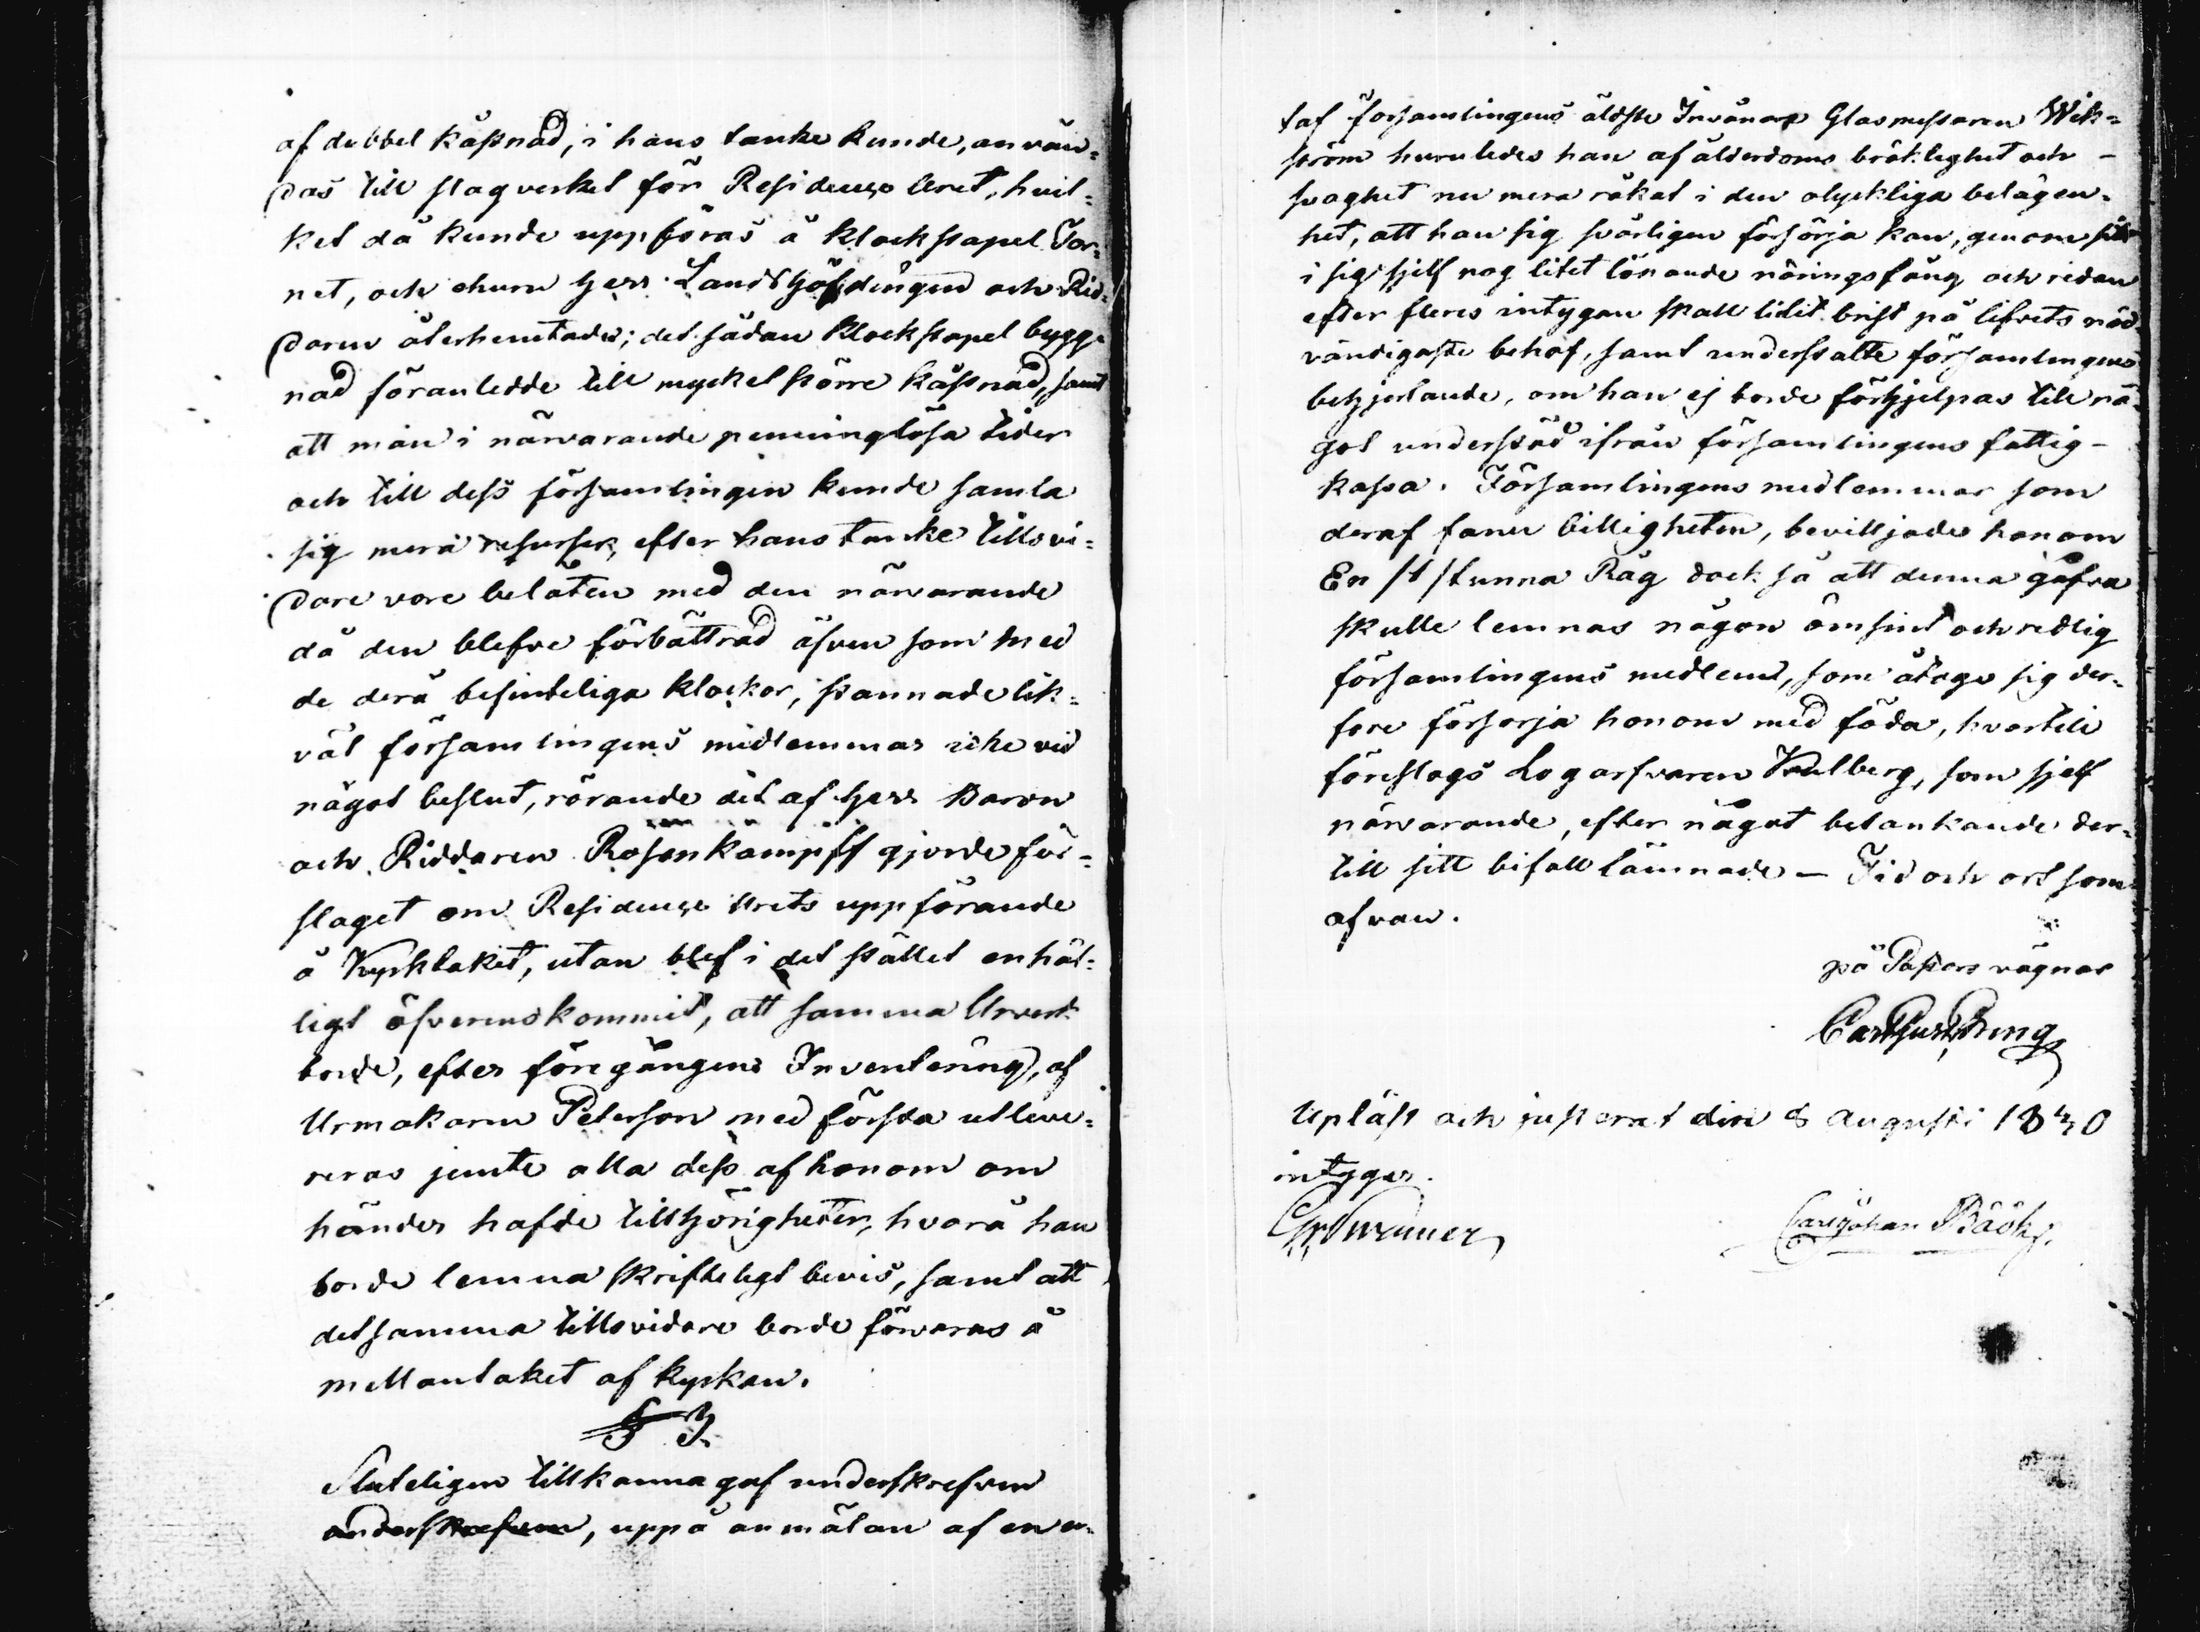 af dubbel kåstnad, i hans tanke kunde, använ=
das till slagverket för Residence Uret, hvil=
ket då kunde uppföras å klockstapel Tor=
net, och ehuru Herr Landshöfdingen och Rid=
daren återhemtade; det sådan klockstapel bygg=
nad föranledde till mycket större kåstnad, samt
att man i närvarande penninglösa tider
och till dess församlingen kunde samla
sig mera resurser, efter hans tanke tillsvi=
dare vore belåten med den närvarande
då den blefve förbättrad äfven som med
de derå befinteliga klockor, stannade lik=
väl församlingens medlemmar icke vid
något beslut, rörande det af Herr Baron
och Riddaren Rosenkampff gjorde för=
slaget om Residence Urets uppförande
å Kyrktaket, utan blef i det stället enhäl=
ligt öfverenskommit, att samma Urverk
borde, efter föregångens Inventering, af
Urmakaren Peterson med första utleve=
reras jemte alla dess af honom om
händer hafde tillhörigheter, hvarå han
borde lemna skrifteligt bevis, samt att
detsamma tillsvidare borde förvaras å
mellantaket af kyrkan.
§ 3.
Sluteligen tillkännagaf underskrefven
underskrefven, uppå anmälan af en er
t af församlingens äldste Invånare Glasmestaren Wik=
ström huruledes han af ålderdoms bräklighet och
svaghet nu mera råkat i den olyckliga belägen=
het, att han sig svårligen försörja kan, genom sitt
i sig sjelf nog litet lönande näringsfång och redan
efter fleres intygan skall lidit brist på lifvets nöd
vändigaste behof, samt understalte församlingens
behjertande, om han ej borde förhjelpas till nå=
got understöd ifrån församlingens fattig-
kassa. Församlingens medlemmar som
deraf fann billigheten, beviljade honom
En /1/ tunna Råg dock så att denna gåfva
skulle lemnas någon ömsint och redlig
församlingens medlem, som åtoge sig der=
fore försorja honom med föda, hvartill
föreslogs Logarfvaren Kulberg, som sjelf
närvarande, efter något betankande der=
till sitt bifall lämnade — Tid och ort som
ofvan.
på Pastors vägnar
Carl Gust
Upläst och justerat den 8 Augusti 1840
intygar.
Carl Johan Bääk